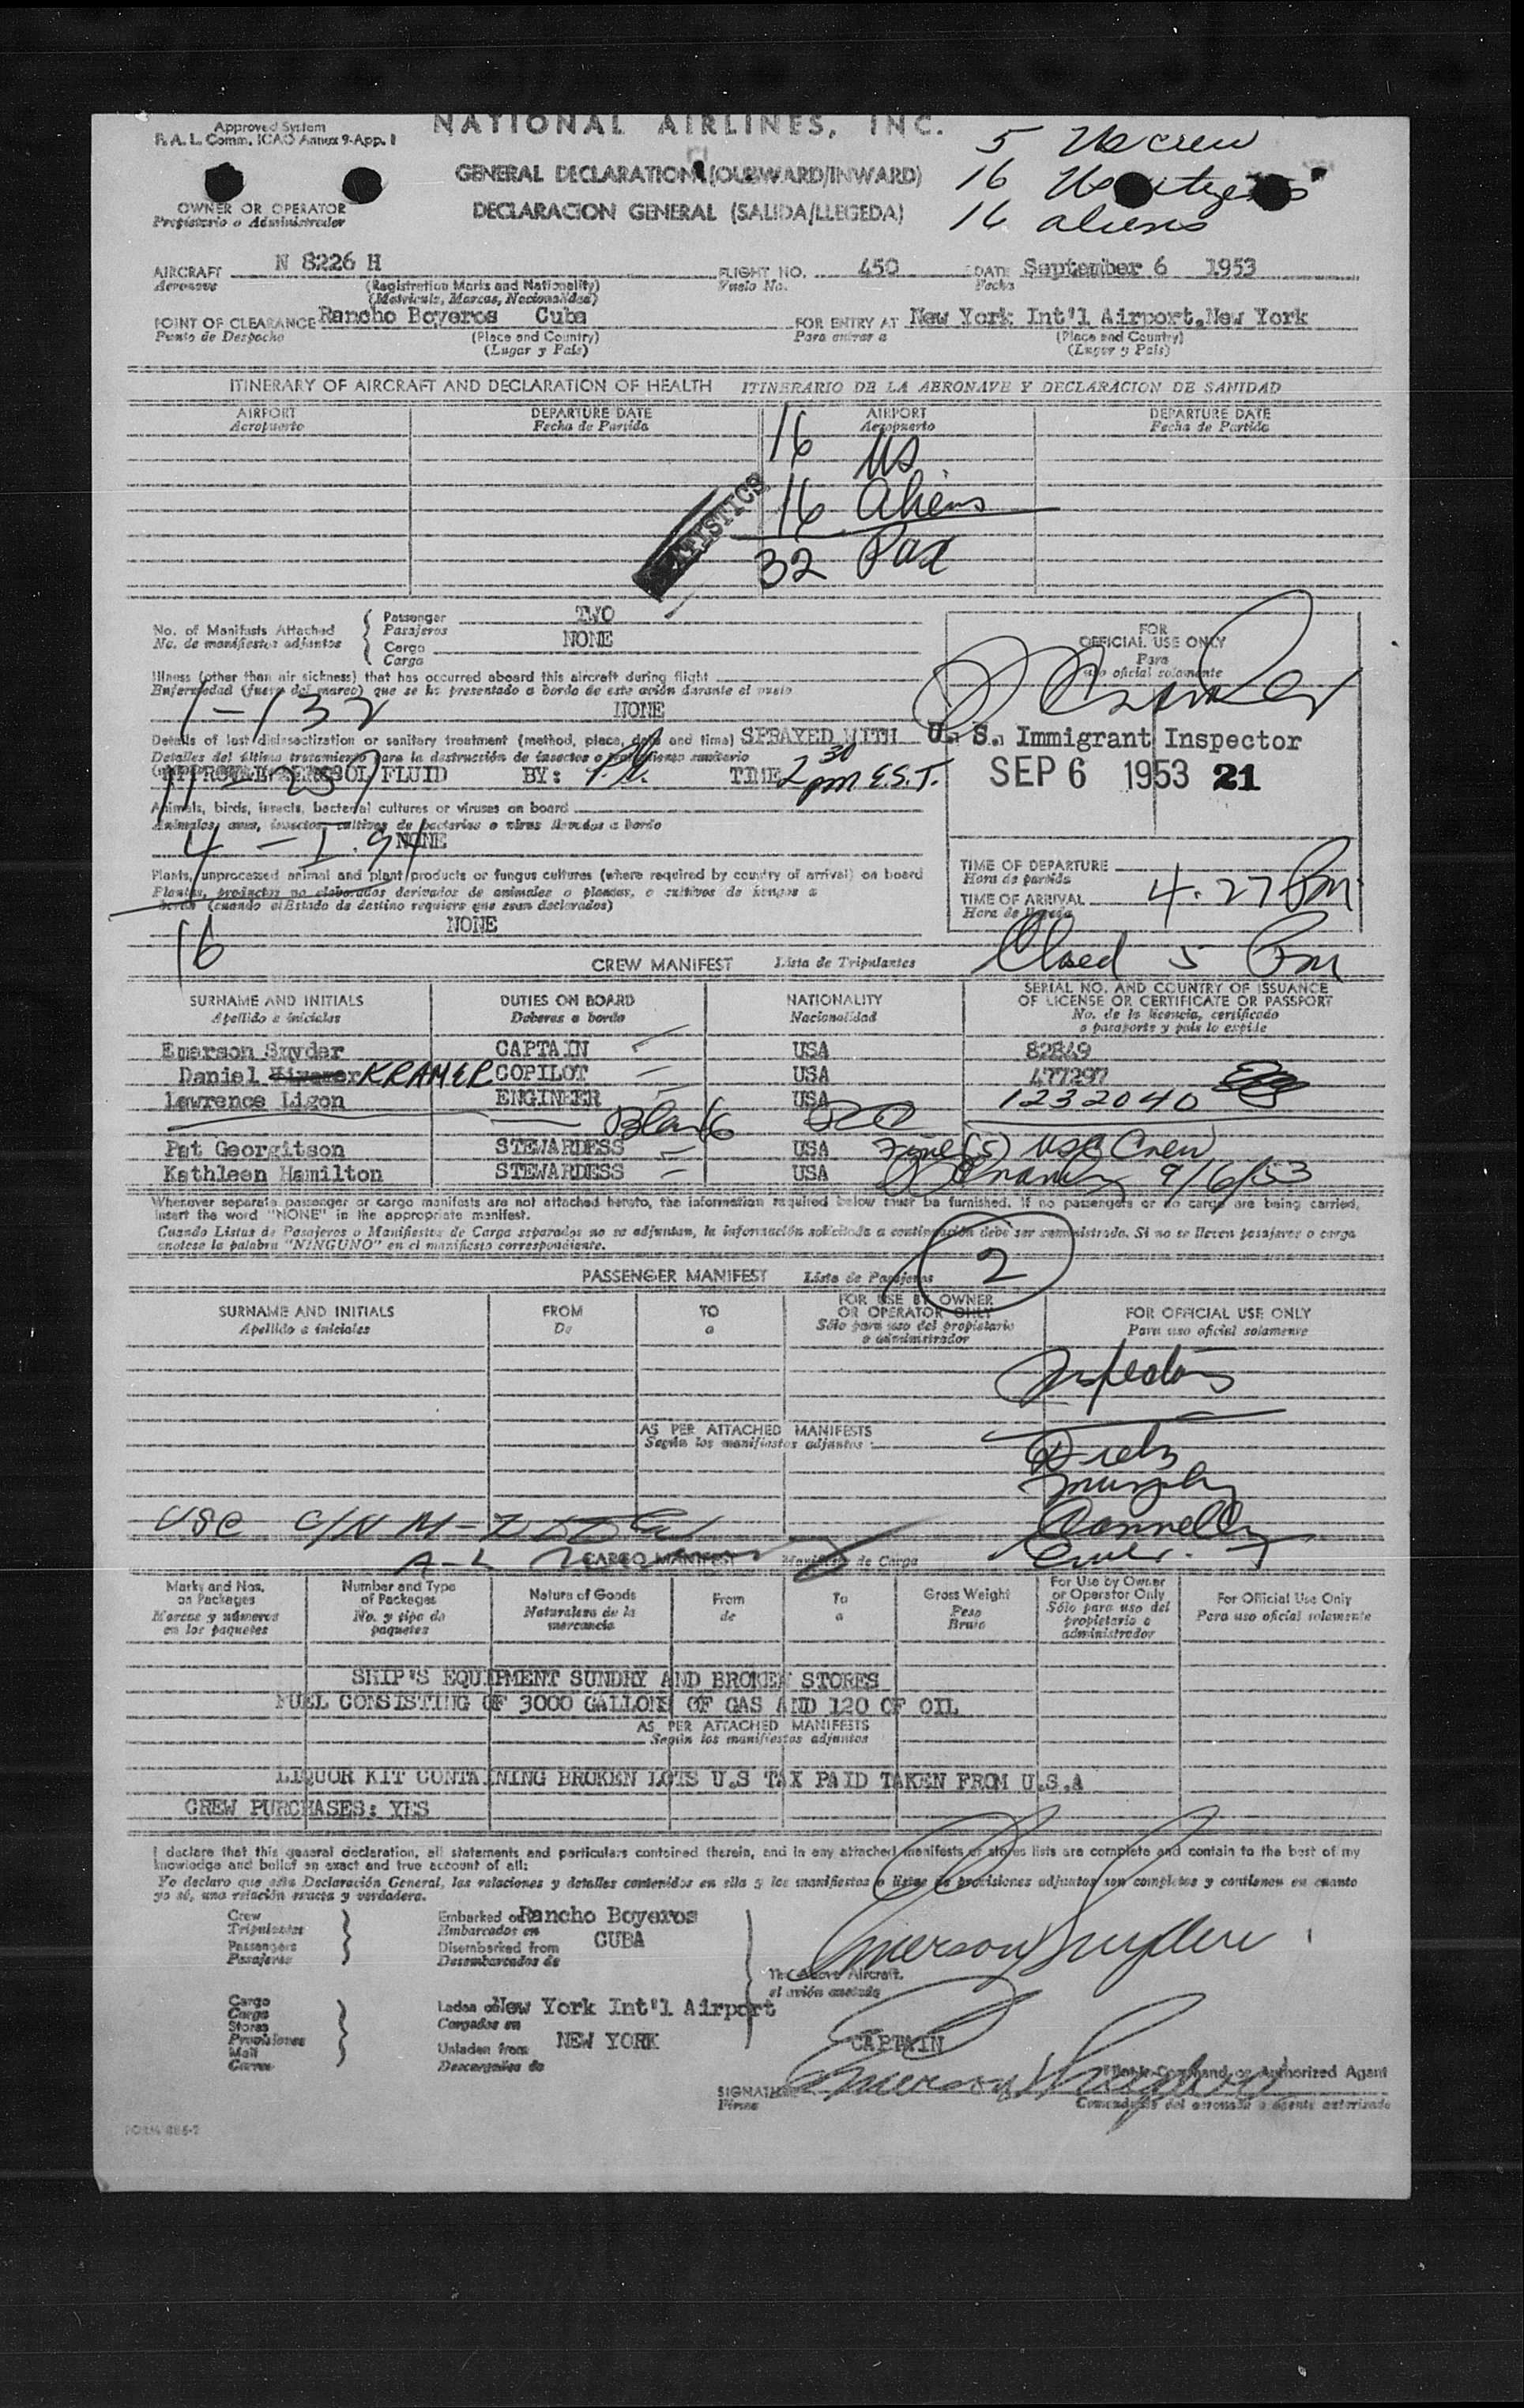 Approved System
F. A. L. Comm. ICAO Annex 9-App. 1
NATIONAL AIRLINES, INC.
5 crew
16
16 aliens
GENERAL DECLARATION (OUTWARD/INWARD)
DECLARACION GENERAL (SALIDA/LLEGEDA)
OWNER OR OPERATOR
Propietario o Administrador
AIRCRAFT N 8226 H FLIGHT NO. 450 DATE September 6 1953
Aeronave (Registration Marks and Nationality) Vuelo No. Fecha
(Matricula, Marcas, Nacionalidad)
POINT OF CLEARANCE Rancho Boyeros Cuba FOR ENTRY AT New York Int'l Airport, New York
Punto de Despacho (Place and Country) Para entrar a (Place and Country)
(Lugar y País) (Lugar y País)
ITINERARY OF AIRCRAFT AND DECLARATION OF HEALTH ITINERARIO DE LA AERONAVE Y DECLARACION DE SANIDAD
AIRPORT DEPARTURE DATE AIRPORT DEPARTURE DATE
Aeropuerto Fecha de Partida Aeropuerto Fecha de Partida
16 US
16 Aliens
32 Pax
STATISTICS
No. of Manifests Attached Passenger TWO
No. de manifiestos adjuntos Pasajeros
Cargo NONE
Carga
FOR
OFFICIAL USE ONLY
Para
uso oficial solamente
Illness (other than air sickness) that has occurred aboard this aircraft during flight
Enfermedad (fuera del mareo) que se ha presentado a bordo de este avión durante el vuelo
NONE
1-132
Details of last disinsectization or sanitary treatment (method, place, date and time) SPRAYED WITH
Detalles del último tratamiento para la destrucción de insectos o tratamiento sanitario
APPROVED AEROSOL FLUID BY: TIME 2 30 pm E.S.T.
U. S. Immigrant Inspector
SEP 6 1953 21
Animals, birds, insects, bacterial cultures or viruses on board
Animales, aves, insectos, cultivos de bacterias o virus llevados a bordo
NONE
4 - I.94
Plants, unprocessed animal and plant products or fungus cultures (where required by country of arrival) on board
Plantas, productos no elaborados derivados de animales o plantas, o cultivos de hongos a
bordo (cuando el Estado de destino requiere que sean declarados)
NONE
16
TIME OF DEPARTURE
Hora de partida
TIME OF ARRIVAL 4:27 Pm
Hora de llegada
Closed 5 Pm
CREW MANIFEST Lista de Tripulantes
SURNAME AND INITIALS DUTIES ON BOARD NATIONALITY SERIAL NO. AND COUNTRY OF ISSUANCE
OF LICENSE OR CERTIFICATE OR PASSPORT
Apellido e iniciales Deberes a bordo Nacionalidad No. de la licencia, certificado
o pasaporte y país lo expide
Emerson Snyder CAPTAIN USA 82849
Daniel KRAMER COPILOT USA 477297
Lawrence Ligon ENGINEER USA 1232040
Blank
Pat Georgitson STEWARDESS USA Five (5) USC Crew
Kathleen Hamilton STEWARDESS USA 9/6/53
Whenever separate passenger or cargo manifests are not attached hereto, the information required below must be furnished. If no passengers or no cargo are being carried,
insert the word "NONE" in the appropriate manifest.
Cuando Listas de Pasajeros o Manifiestos de Carga separados no se adjuntan, la información solicitada a continuación debe ser suministrada. Si no se lleven pasajeros o carga
anotese la palabra "NINGUNO" en el manifiesto correspondiente.
2
PASSENGER MANIFEST Lista de Pasajeros
SURNAME AND INITIALS FROM TO FOR USE BY OWNER
OR OPERATOR ONLY FOR OFFICIAL USE ONLY
Apellido e iniciales De a Sólo para uso del propietario
o administrador Para uso oficial solamente
Inspectors
AS PER ATTACHED MANIFESTS
Según los manifiestos adjuntos
Murphy
Connelly
USC
A-L
CARGO MANIFEST Manifiesto de Carga
Marks and Nos.
on Packages Number and Type
of Packages Nature of Goods From To Gross Weight For Use by Owner
or Operator Only For Official Use Only
Marcas y números
en los paquetes No. y tipo de
paquetes Naturaleza de la
mercancia de a Peso
Bruto Sólo para uso del
propietario o
administrador Para uso oficial solamente
SHIP'S EQUIPMENT SUNDRY AND BROKEN STORES
FUEL CONSISTING OF 3000 GALLONS OF GAS AND 120 OF OIL
AS PER ATTACHED MANIFESTS
Según los manifiestos adjuntos
LIQUOR KIT CONTAINING BROKEN LOTS U.S TAX PAID TAKEN FROM U.S.A
CREW PURCHASES: YES
I declare that this general declaration, all statements and particulars contained therein, and in any attached manifests or stores lists are complete and contain to the best of my
knowledge and belief an exact and true account of all:
Yo declaro que esta Declaración General, las relaciones y detalles contenidos en ella y los manifiestos o listas de provisiones adjuntos son completos y contienen en cuanto
yo sé, una relación exacta y verdadera.
Crew
Tripulantes
Passengers
Pasajeros
Embarked on Rancho Boyeros
Embarcados en
Disembarked from CUBA
Desembarcados de
Emerson Snyder
The Above Aircraft.
el avión anotado
Cargo
Carga
Stores
Provisiones
Mail
Correo
Laden on New York Int'l Airport
Cargados en
Unladen from NEW YORK
Descargados de
CAPTAIN
Pilot-in-Command or Authorized Agent
SIGNATURE Emerson Snyder
Firma Comandante del aeronave o agente autorizado
FORM 886-2